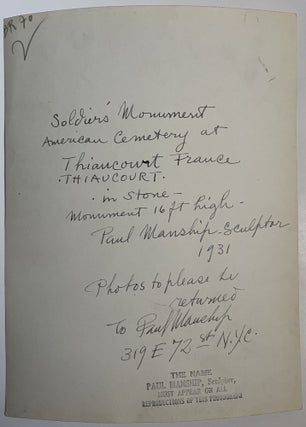 BK 70
Soldiers' Monument
American Cemetery at
Thiaucourt France
THIAUCOURT.
in Stone -
Monument 16 ft high -
Paul Manship - Sculptor
1931
Photos to please be
returned
To Paul Manship
319 E 72 st N.Y.C.
THE NAME
PAUL MANSHIP, Sculptor,
MUST APPEAR ON ALL
REPRODUCTIONS OF THIS PHOTOGRAPH